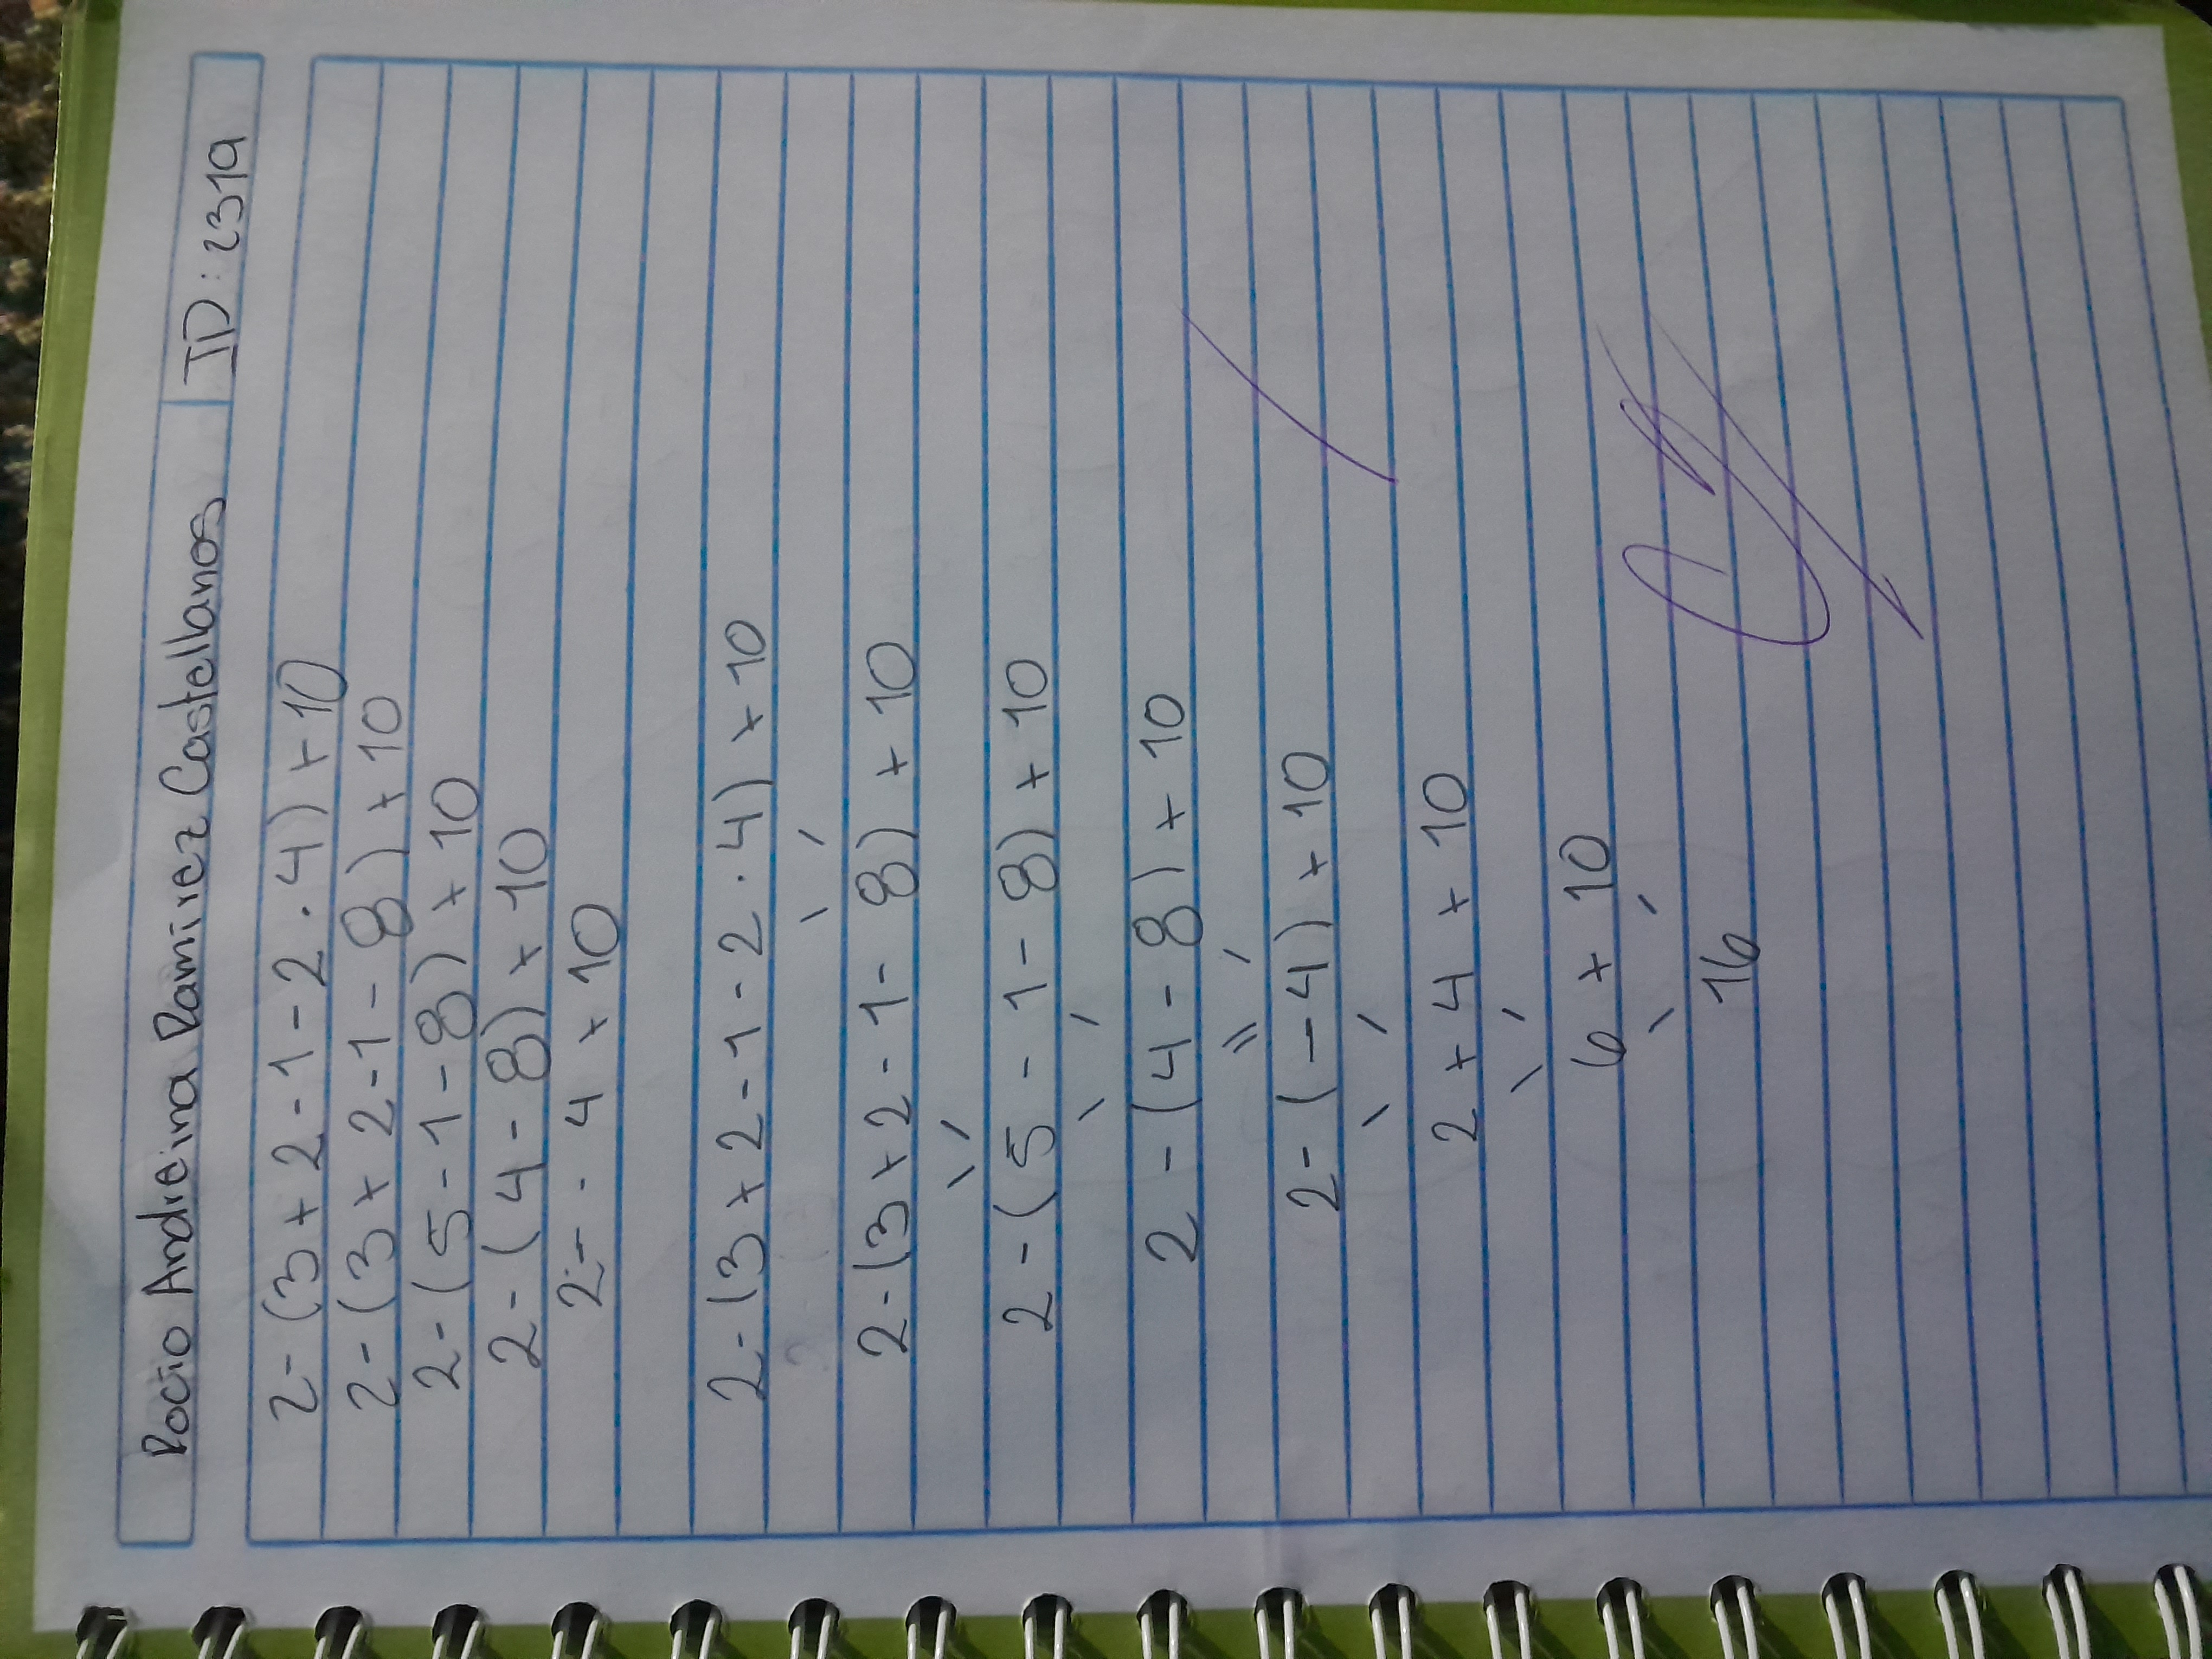 Rocio Andreina Ramirez Castellanos ID: 2319
2-(3+2-1-2.4)+10
2-(3+2-1-8)+10
2-(5-1-8)+10
2-(4-8)+10
2--4+10
2-(3+2-1-2.4)+10
2-(3+2-1-8)+10
2-(5-1-8)+10
2-(4-8)+10
2-(-4)+10
2+4+10
6+10
16